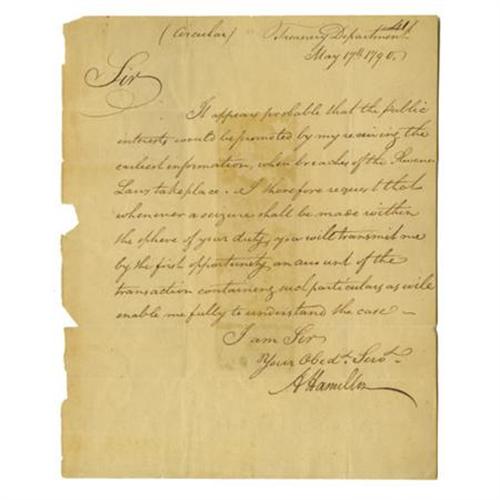 (Circular) Treasury Department
May 17th 1790.
Sir
It appears probable that the public
interests would be promoted by my receiving the
earliest information, when breaches of the Revenue
Laws take place. I therefore request that
whenever a seizure shall be made within
the sphere of your duty, you will transmit me
by the first opportunity an account of the
transaction containing such particulars as will
enable me fully to understand the case —
I am Sir
Your Obedt. Servt.
A Hamilton